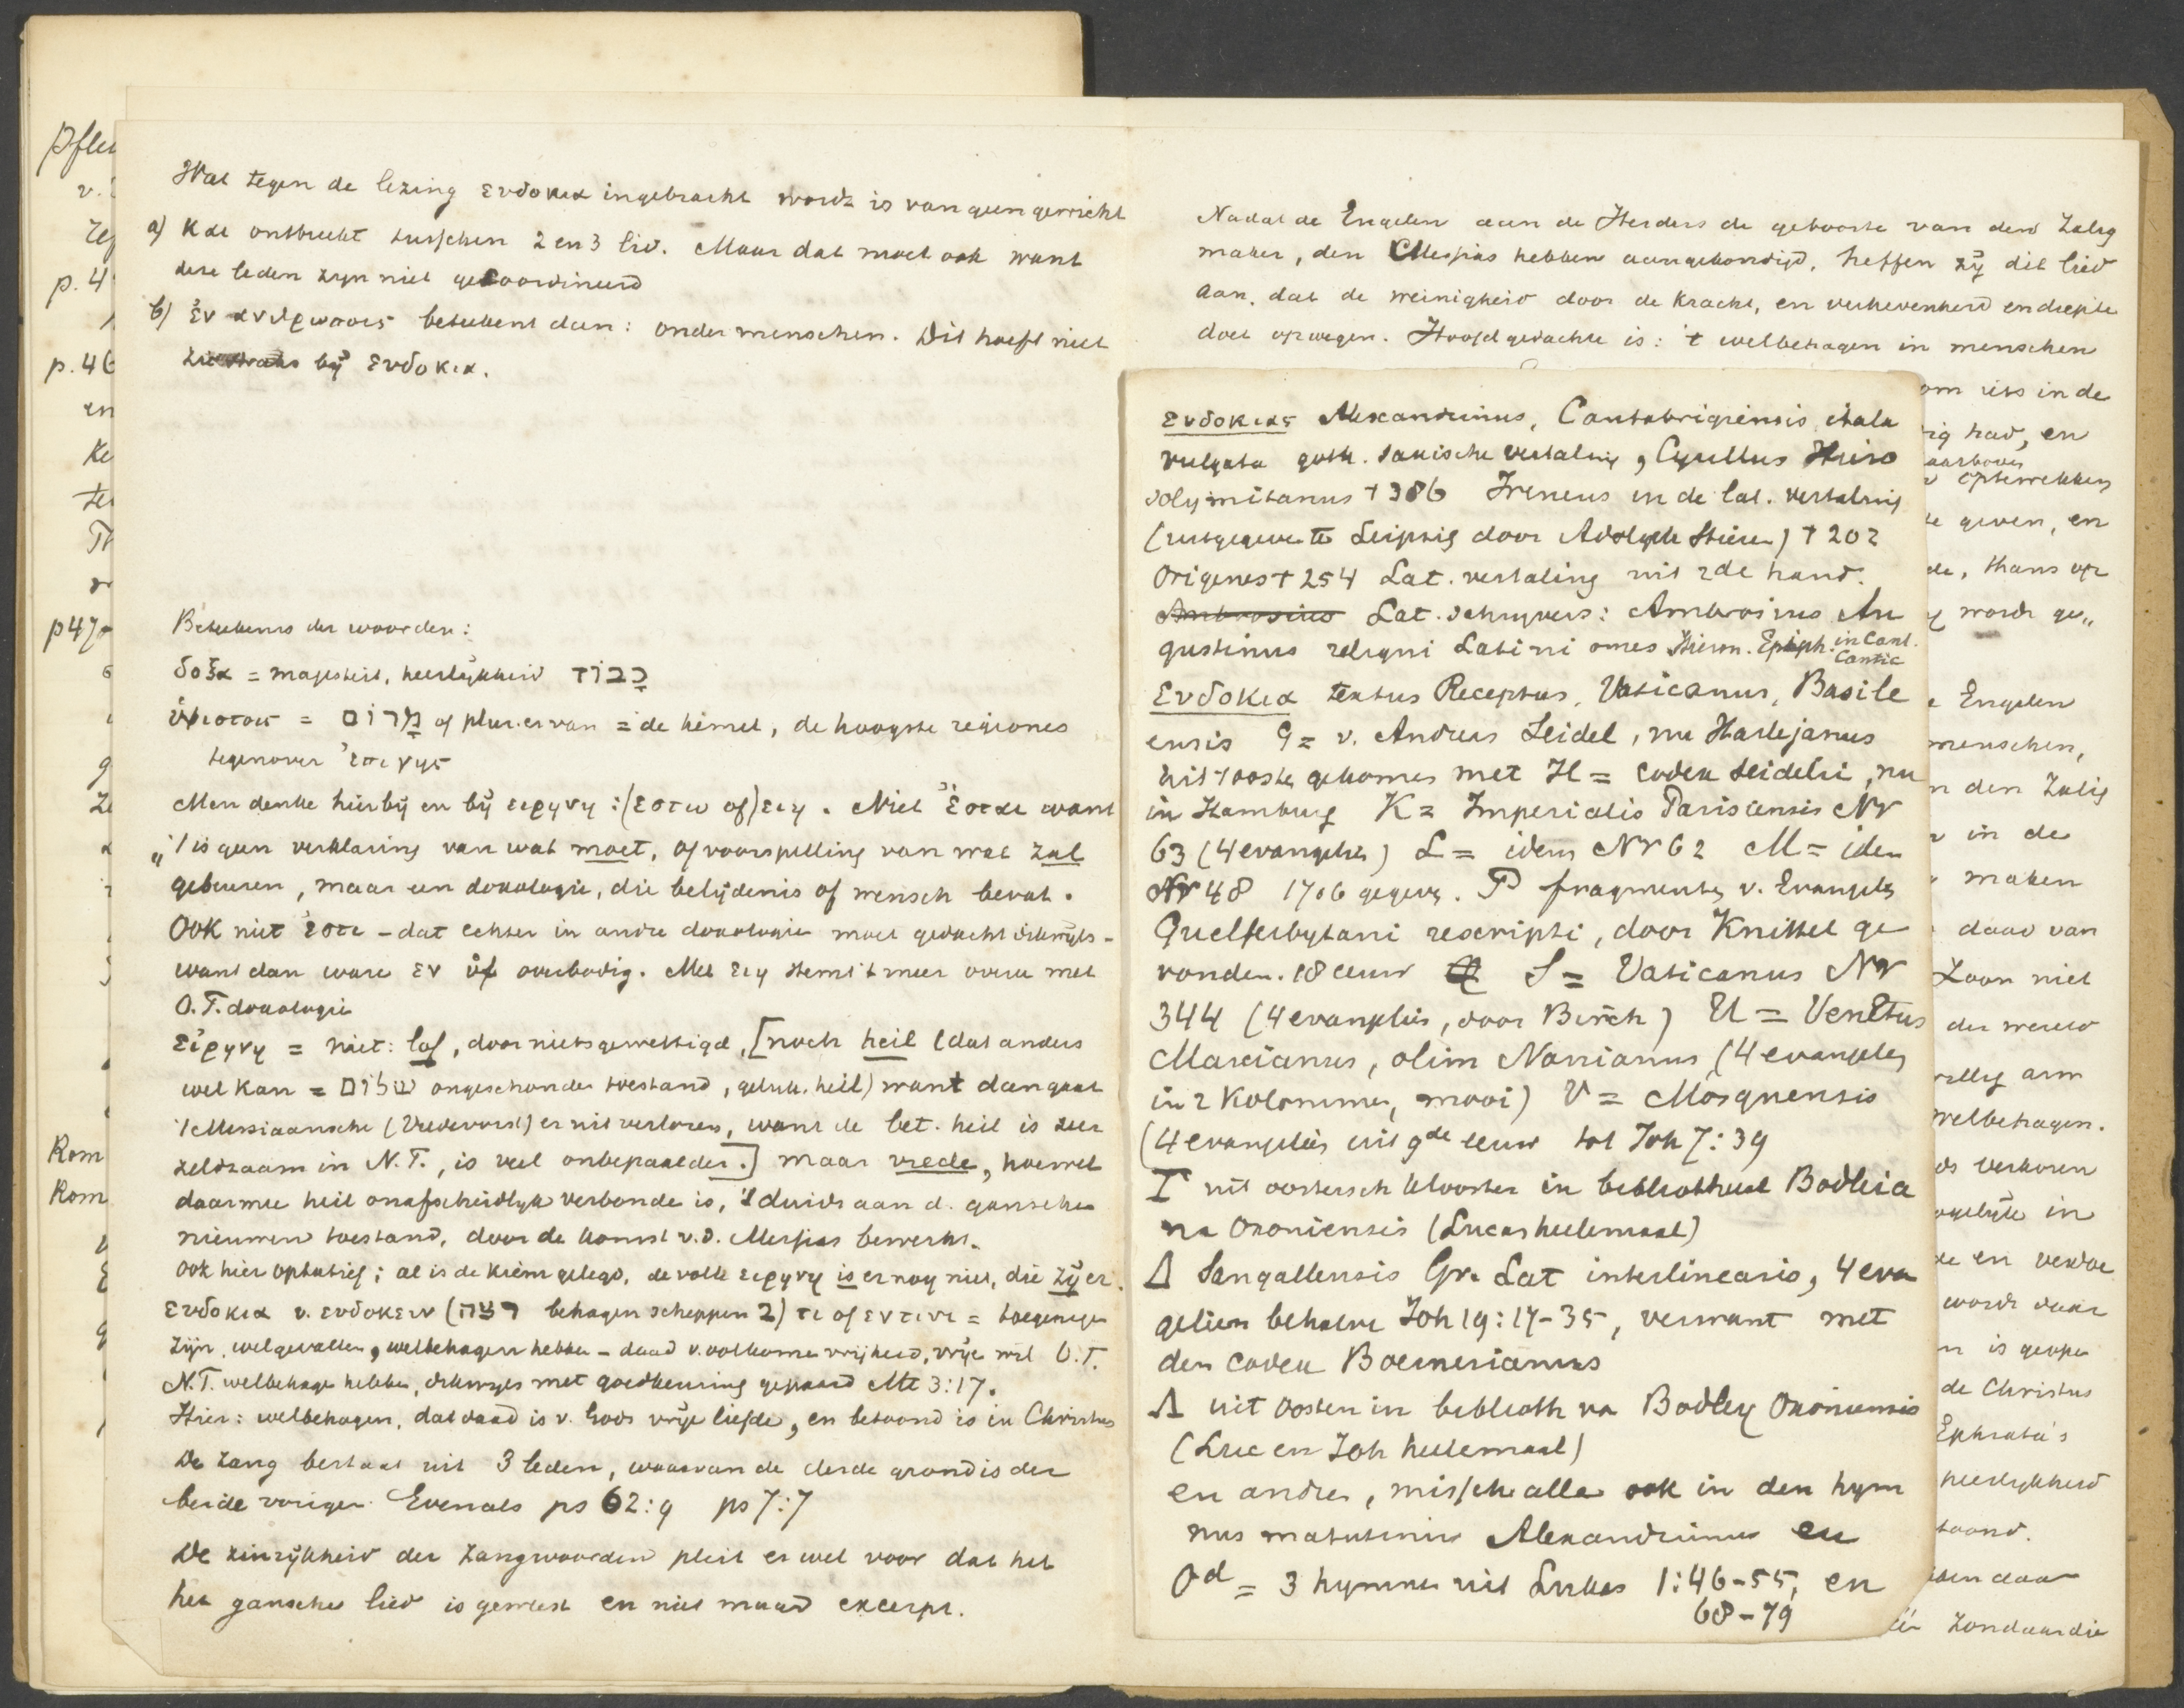 Wat tegen de lezing ευδοκια ingebracht wordt is van geen gewicht
a) και ontbreekt tusschen 2 en 3 lid. Maar dat moet ook want
deze leden zijn niet gecoordineerd
b) ἐν ανθρωποις beteekent dan: onder menschen. Dit hoeft niet
bij ευδοκια.
Beteekenis der woorden:
δοξα = majesteit, heerlijkheid כָבוֹד
ὑψιστοις = מָרוֹם of plur. ervan = de hemel, de hoogste regiones
tegenover ἐπι γης
Men denke hierbij en bij ειρηνη: (εστω of) ειη. Niet ἐσται want
't is geen verklaring van wat moet, of voorspelling van wat zal
gebeuren, maar een doxologie, die belijdenis of wensch bevat.
Ook niet ἐστι - dat echter in andre doxologie moet gedacht dikwijls -
want dan ware εν ὑψ overbodig. Met ειη stemt 't meer overee met
O.T. doxologie
εἰρηνη = niet: lof, door niets gewettigd, [noch heil (dat anders
wel kan = שלום ongeschonden toestand, geluk. heil) want dan gaat
't Messiaansche (Vredevorst) er uit verloren, want de bet. heil is zeer
zeldzaam in N.T., is veel onbepaalder.] maar vrede, hoewel
daarmee heil onafscheidlijk verbonde is, 't duidt aan d. ganschen
nieuwen toestand, door de komst v.d. Messias bewerkt.
Ook hier optatief; al is de kiem gelegd, de volle ειρηνη is er nog niet, die zij er.
ευδοκια v. ευδοκειν (רצה behagen scheppen ב) τι of εν τινι = toegenegen
zijn, welgevallen, welbehagen hebben - daad v. volkome vrijheid, vrije wil O.T.
N.T. welbehage hebbe, dikwijls met goedkeuring gepaard Mt 3:17.
Hier: welbehagen, dat daad is v. Gods vrije liefde, en betoond is in Christus
De zang bestaat uit 3 leden, waarvan de derde grond is der
beide vorigen. Evenals ps 62:9 ps 7:7
De zinrijkheid der zangwoorden pleit er wel voor dat het
het gansche lied is geweest en niet maar excerpt.
Pfle
v.
p. 4
p. 46
en
Ke
p 47
Rom
Rom
Nadat de Engelen aan de Herders de geboorte van den Zalig
maker, den Messias hebben aangekondigd, heffen zij dit lied
aan, dat de weinigheid door de kracht, en verhevenheid en diepte
doet opwegen. Hoofdgedachte is: 't welbehagen in menschen
om iets in de
ig had, en
aarboven
optewekken
te geven, en
de, thans op
wordt ge„
Engelen
menschen,
n den Zalig
in de
maken
daad van
Zoon niet
der wereld
willig arm
welbehagen.
ds verkoren
ogelijk in
de en
wordt daar
n is geope
de Christus
Ephrata's
heerlijkheid
toond.
zondaar die
ευδοκιας Alexandrinus, Cantabrigiensis, itala
vulgata goth. saxische vertaling, Cyrillus Hiero
solymitanus † 386 Ireneus in de lat. vertaling
(uitgegeven te Leipzig door Adolph Stieren) † 202
Origenes † 254 Lat. vertaling uit 2de hand.
Ambrosius Lat. schrijvers: Ambrosius Au
gustinus reliqui Latini omes Hieron. Epiph. in Cant.
Cantic
Ευδοκια textus Receptus, Vaticanus, Basile
ensis G = v. Andreas Seidel, nu Harlejanus
uit 't ooste gekomen met H = codex Seidelii, nu
in Hamburg K = Imperialis Parisiensis Nr
63 (4 evangelies) L = idem Nr 62 M = idem
Nr 48 1706 gegeven. P fragmenten v. Evangelies
Guelferbytani rescripti, door Knittel ge
vonden. 18 eeuw S = Vaticanus Nr
344 (4 evangelies, door Birch) U = Venetus
Marcianus, olim Nanianus (4 evangelies
in 2 kolommen, mooi) V = Mosquensis
(4 evangelies uit 9de eeuw tot Joh 7:39
Γ uit oostersch klooster in bibliotheek Bodleia
na Oxoniensis (Lucas heelemaal)
Δ Sangallensis Gr. Lat interlinearis, 4 eva
gelien behalve Joh 19:17-35, verwant met
den codex Boernerianus
Λ uit Oosten in biblioth va Bodley Oxoniensis
(Luc en Joh heelemaal)
en andre, misschi alle ook in den hym
nus matutinus Alexandrinus en
Od = 3 hymnen uit Lukas 1:46-55, en
68-79